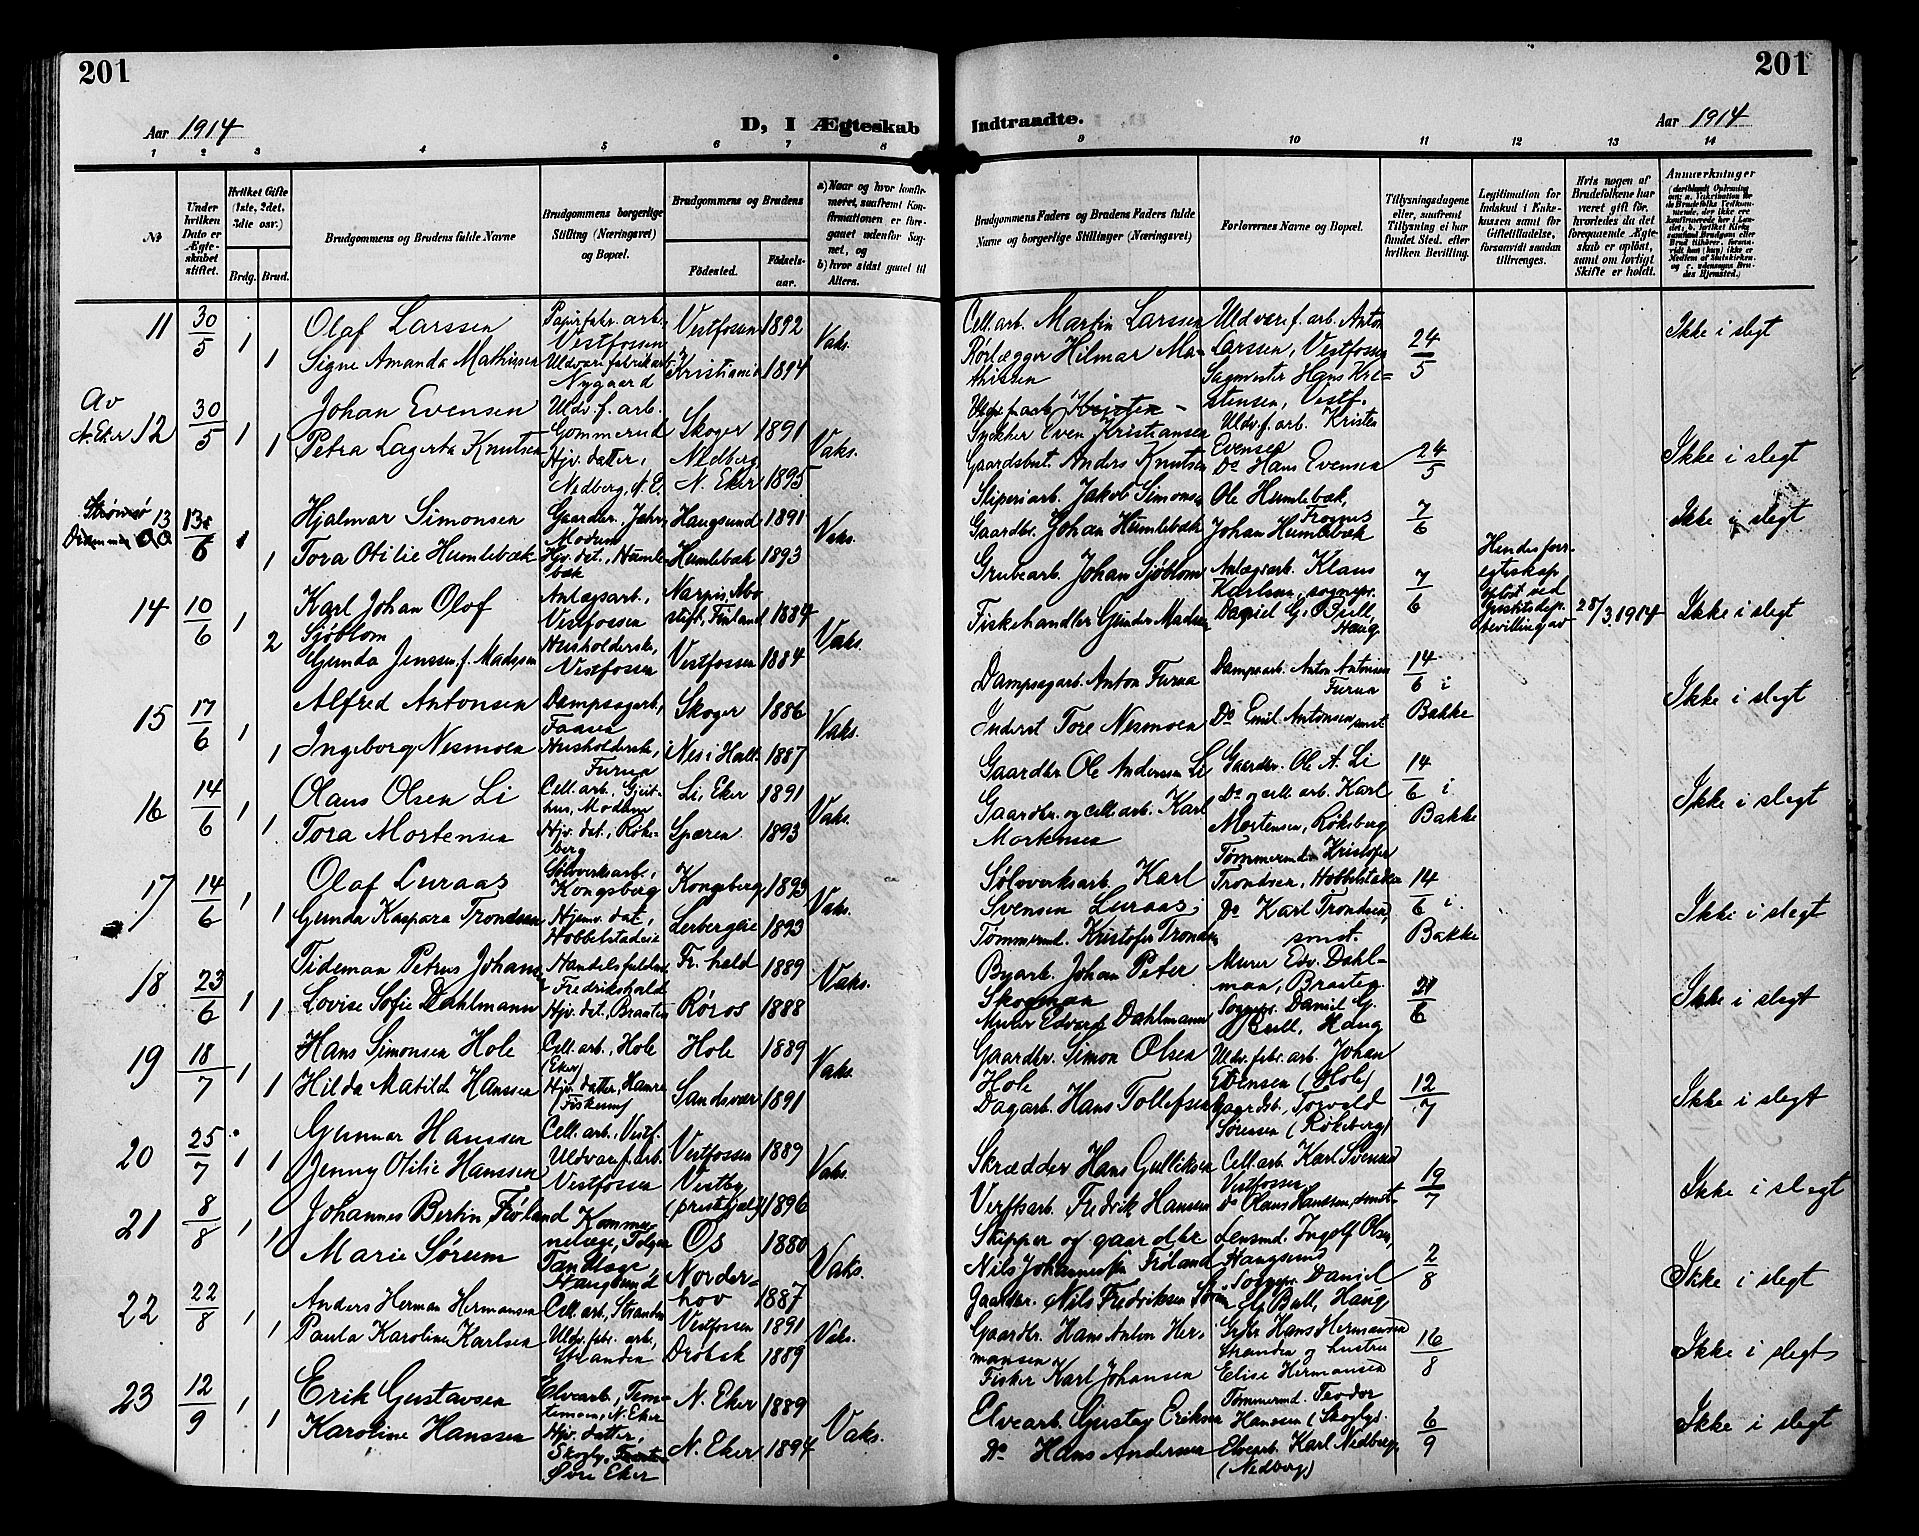 201
201
Aar 1914
D, I Ægteskab Indtraadte.
Aar 1914
1 2 3 4 5 6 7 8 9 10 11 12 13 14
№
Under hvilken Dato er Ægteskabet stiftet.
Hvilket Gifte (1ste, 2det, 3die osv.)
Brdg. Brud.
Brudgommens og Brudens fulde Navne
Brudgommens borgerlige Stilling (Næringsvei) og Bopæl.
Brudgommens og Brudens
Fødested.
Fødselsaar.
a) Naar og hvor konfirmeret, saafremt Konfirmationen er foregaaet udenfor Sognet, og
b) hvor sidst gaaet til Alters.
Brudgommens Faders og Brudens Faders fulde Navne og borgerlige Stillinger (Næringsvei)
Forlovernes Navne og Bopæl.
Tillysningsdagene eller, saafremt Tillysning ei har fundet Sted. efter hvilken Bevilling.
Legitimation for Indskud i Enkekassen samt for Giftetilladelse, forsaavidt saadan tiltrænges.
Hvis nogen af Brudefolkene har været gift før, hvorledes da det foregaaende Ægteskab er opløst, samt om lovligt Skifte er holdt.
Anmærkninger
11 30/5 1 Olaf Larssen Papirfabr. arb. Vestfossen Vestfossen 1892 Vaks. Cell. arb. Martin Larssen Uldvaref. arb. Anton Larssen, Vestfossen 24/5 Ikke i slegt
1 Signe Amanda Mathissen Uldvarefabrikarb. Nygaard Kristiania 1894 Rørlægger Hilmar Mathissen Sagmester Hans Kristensen, Vestf.
Av N. Eker 12 30/5 1 Johan Evensen Uldv. f. arb. Gommerud Skoger 1891 Vaks. Even Kristiansen Uldv. f. arb. Kristen Evensen 24/5 Ikke i slegt
1 Petra Lagerta Knutsen Hjv. datter, Nedberg, N. E. Nedberg, N. Eker 1895 Gaardsbest. Anders Knutsen Do Hans Evensen
Strømsø Drammen 13 13/6 1 Hjalmar Simonsen Gaardbr. Modum Haugsund 1891 Vaks. Sliperiarb. Jakob Simonsen Ole Humlebæk, 7/6 Ikke i slegt
1 Tora Otilie Humlebæk Hjv. dat., Humlebæk Humlebæk 1893 Gaardbr. Johan Humlebæk Johan Humlebæk
14 10/6 1 Karl Johan Olof Sjøblom Anlægsarb., Vestfossen Narpis, Åbo stift, Finland 1884 Vaks. Grubearb. Johan Sjøblom Anlægsarb. Klaus Karlsen, 7/6 Hendes forr. egteskap opløst ved Justitsdep. bevilling av 28/3 1914 Ikke i slegt
2 Gunda Jenssen f. Madssen Husholderske, Vestfossen Vestfossen 1884 Fiskehandler Gunder Madsen sognepr. Daniel G. Bull, Haug
15 17/6 1 Alfred Antonsen Dampsagarb., Skoger 1886 Vaks. Dampsagarb. Anton Furua Dampsarb. Anton Antonsen Furua 14/6 i Bakke Ikke i slegt
1 Ingeborg Nesmoen Husholderske, Furua Nes i Hall. 1887 Inderst Tore Nesmoen Do Emil Antonsen smst
16 14/6 1 Olaus Olsen Li Cell. arb. Gjeithus, Modum Li, Eker 1891 Vaks. Gaardbr. Ole Andersen Li Gaardbr. Ole A. Li 14/6 i Bakke Ikke i slegt
1 Tora Mortensen Hjv. dat., Røkeberg Spæren 1893 Gaardbr. og cell. arb. Karl Mortensen Do og cell. arb. Karl Mortensen, Røkeberg
17 14/6 1 Olaf Luraas Sølvverksarb., Kongsberg Kongsberg 1893 Vaks. Sølvverksarb. Karl Svensen Luraas Tømmermd. Kristofer Trondsen, Hobbelstadeie 14/6 i Bakke Ikke i slegt
1 Gunda Kaspara Trondsen Hjemv. dat., Hobbelstadeie Lerbergeie 1893 Tømmermd. Kristofer Trondsen Do Karl Trondsen, smst.
18 23/6 1 Tideman Petrus Johansen Handelsfuldm. Fredrikshald Fr. hald 1889 Vaks. Byarb. Johan Peter Skogman Murer Edv. Dahlman, Braaten 21/6 Ikke i slegt
1 Lovise Sofie Dahlmann Hjv. det., Braaten Røros 1888 Murer Edvard Dahlmann Sognepr. Daniel G. Bull, Haug
19 18/7 1 Hans Simonsen Hole Cell. arb., Hole (Eker) Hole 1889 Vaks. Gaardbr. Simon Olsen Hole Uldv. febr. arb. Johan Evensen (Hole) 12/7 Ikke i slegt
1 Hilda Matilde Hanssen Hjv. datter, Hamre (Fiskum) Sandsvær 1891 Dagarb. Hans Tollefsen Gaardsb. Torvald Sørensen (Røkeberg)
20 25/7 1 Gunnar Hanssen Cell. arb., Vestf. Vestfossen 1889 Vaks. Skrædder Hans Gulliksen Cell. arb. Karl Svensen Vestfossen 19/7 Ikke i slegt
1 Jenny Otilie Hanssen Uldvaref. arb. Vestfossen Vestby (prestegjeld) 1896 Verftsarb. Fredrik Hansen Do Olaus Hanssen, smst
21 8/8 1 Johannes Bertin Frøland Kommunelæge, Tolgen Os 1880 Vaks. Skipper og gaardbr. Nils Johannessen Frøland Lensmd. Ingolf Olsen, Haugsund 2/8 Ikke i slegt
1 Marie Sørum Tandlæge, Haugsund Norderhov 1887 Gaardbr. Nils Fredriksen Sørum Sognepr. Daniel G. Bull, Haug
22 22/8 1 Anders Herman Hermansen Cell. arb., Stranden Vestfossen 1891 Vaks. Gaardbr. Hans Anton Hermansen Grbr Hans Hermansen Stranden og hustru 16/8 Ikke i slegt
1 Paula Karoline Karlsen Uldv. febr. arb., Stranden Drøbak 1889 Fisker Karl Johansen Elise Hermansen
23 12/9 1 Erik Gustavsen Elvearb., N. Eker N. Eker 1889 Vaks. Elvearb. Gustav Eriksen Tømmermd. Teodor Hanssen (Skogby) 6/9 Ikke i slegt
1 Karoline Hanssen Hjv. datter, Skogby, Øvre Eker N. Eker 1894 Do Hans Andersen Elvearb. Karl Nedberg, (Nedberg)